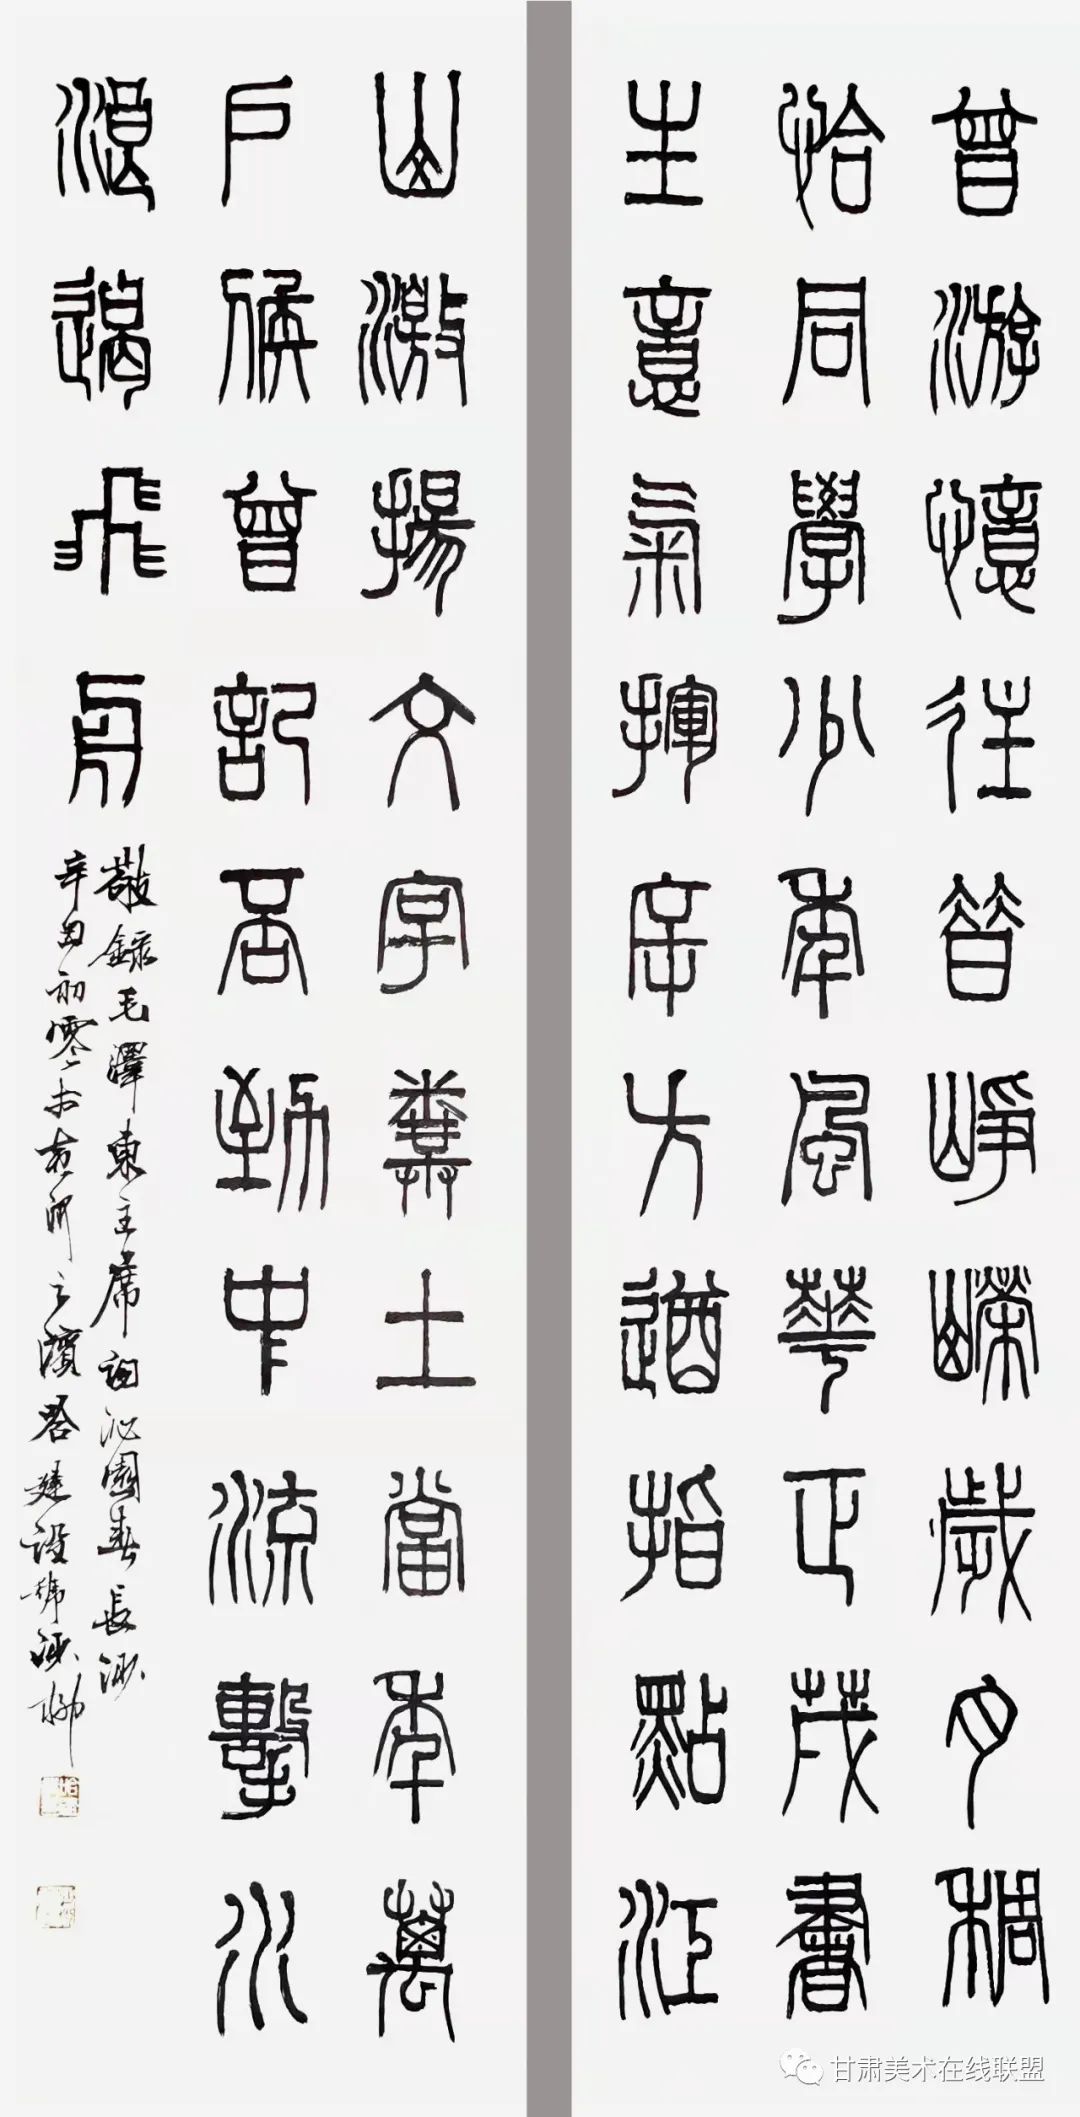 曾游憶往昔崢嶸歲月稠
恰同學少年風華正茂書
生意氣揮斥方遒指點江
山激揚文字糞土當年萬
户侯曾記否到中流擊水
浪遏飛舟
敬錄毛澤東主席詞沁園春長沙
辛丑初之濱建設
甘肃美术在线联盟